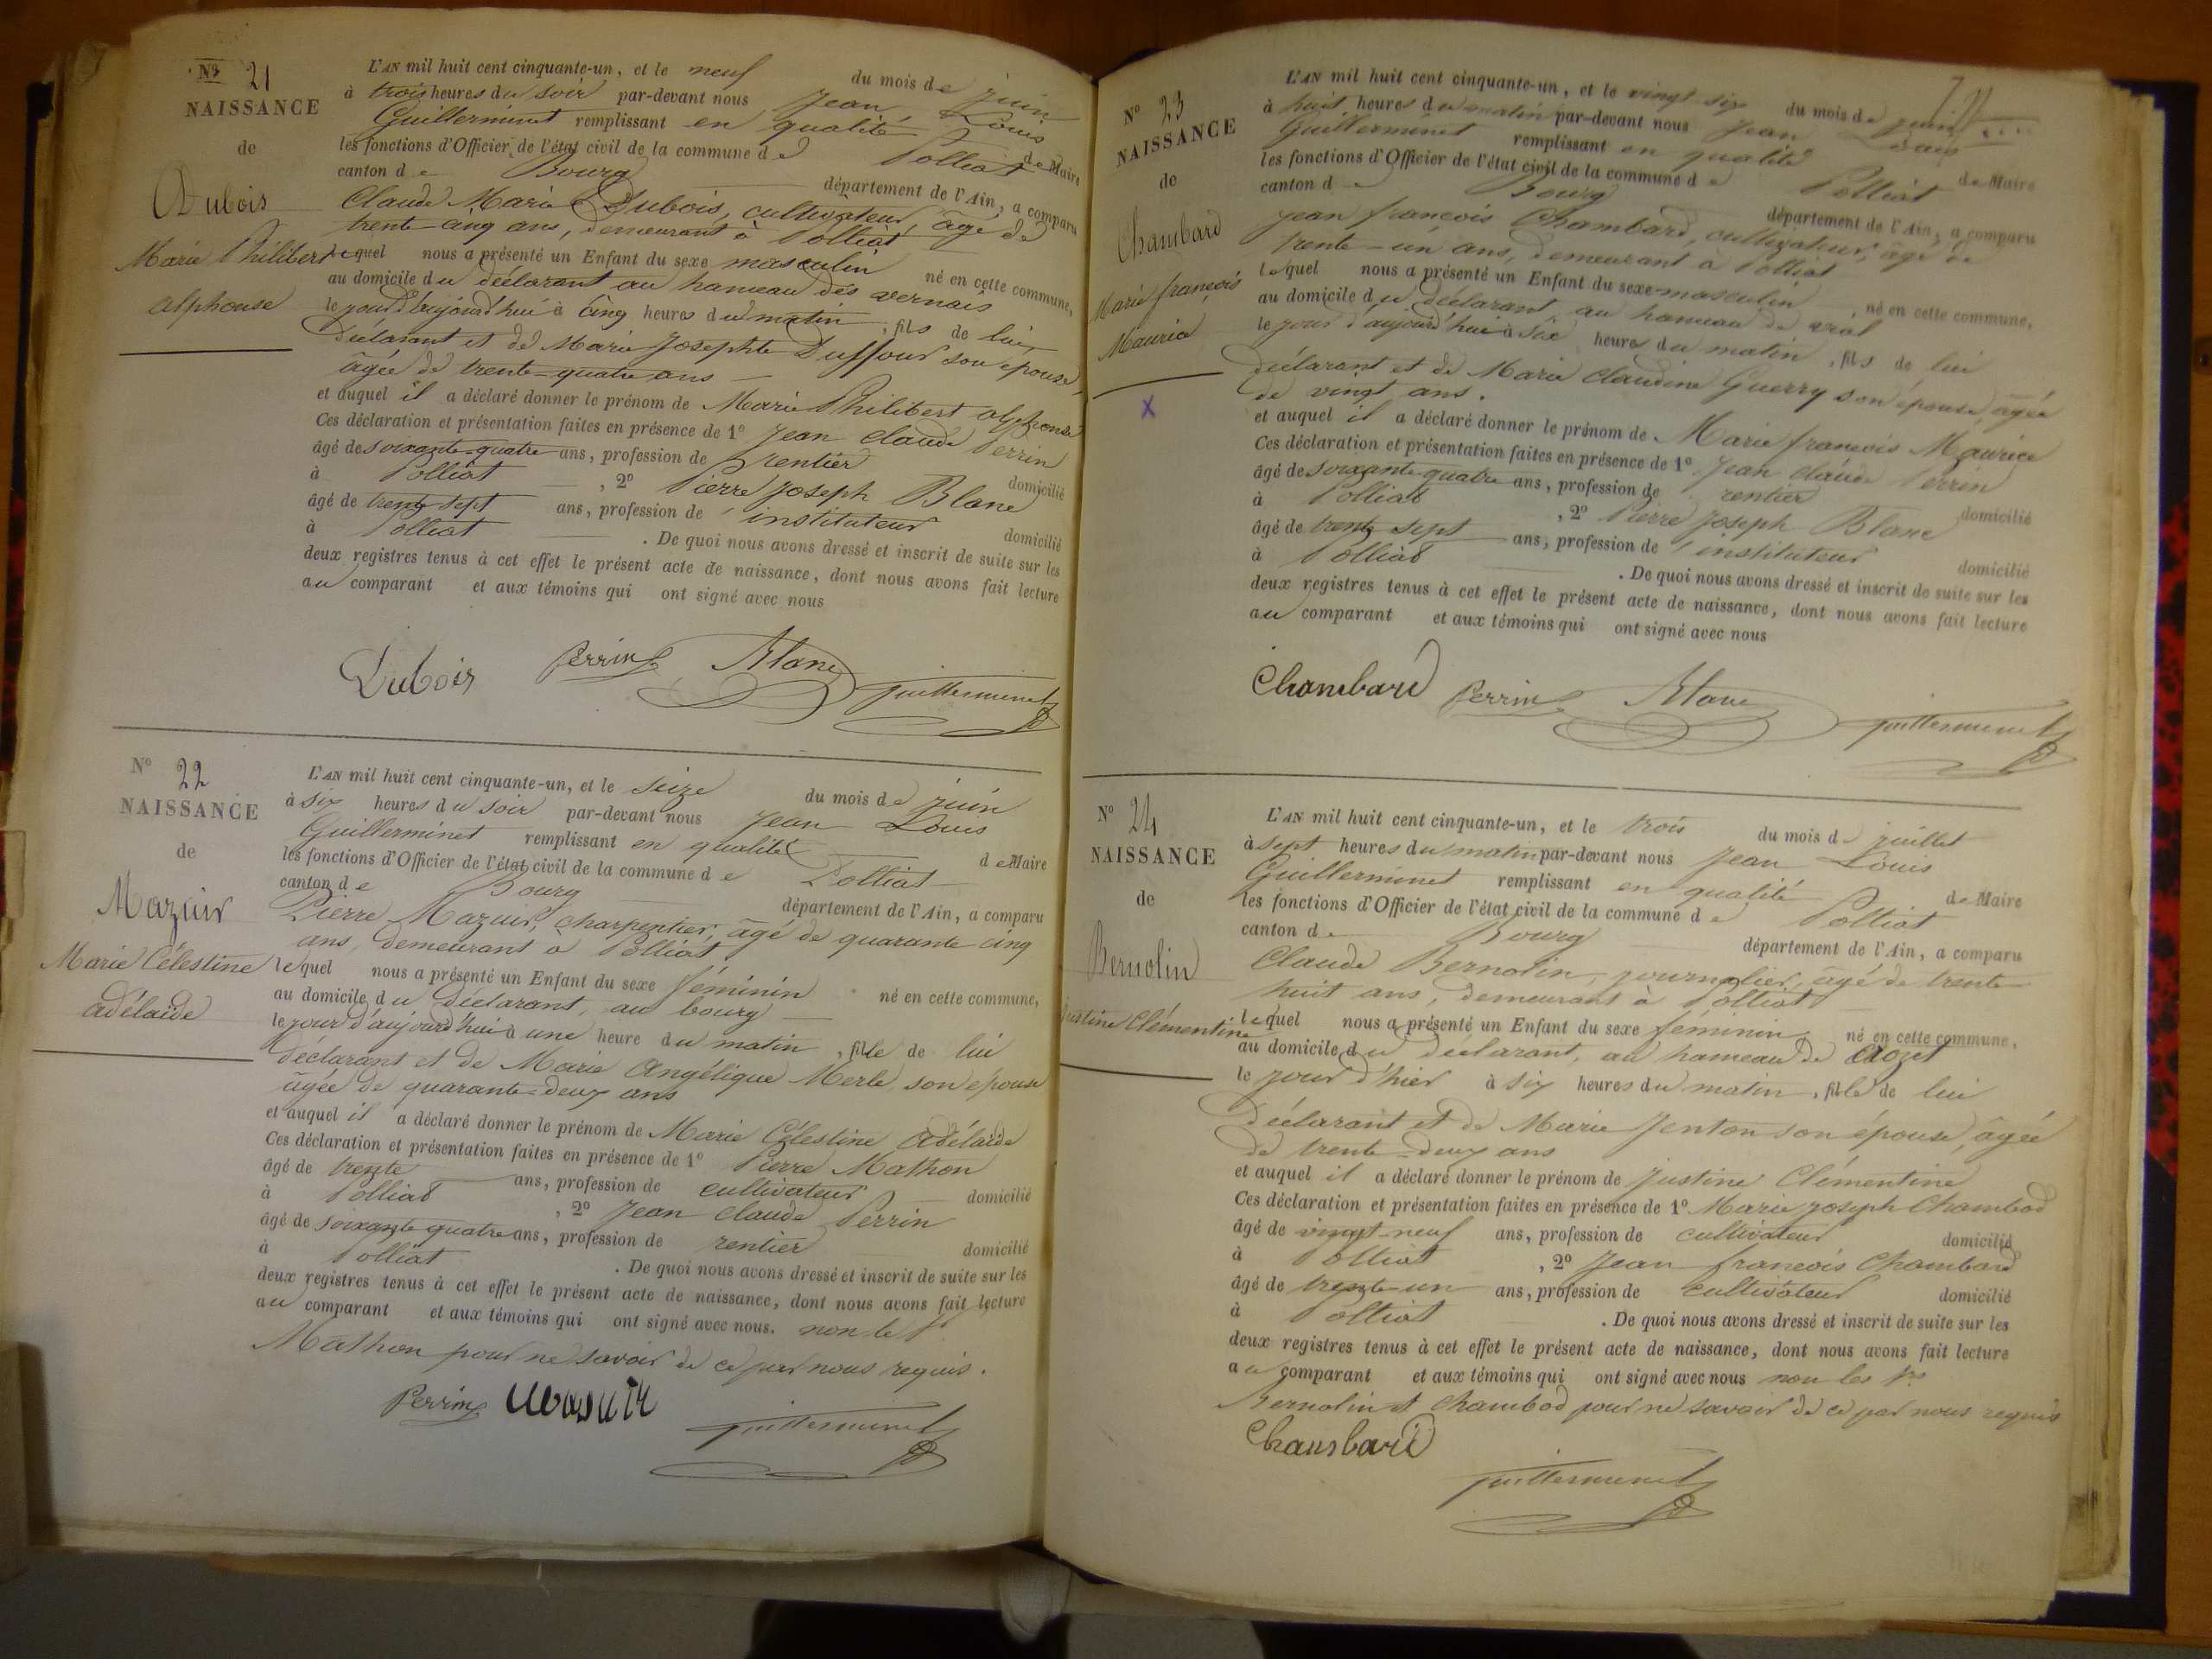 N° 21
NAISSANCE
de
Dubois
Marie Philibert
alphonse
L'AN mil huit cent cinquante-un, et le neuf du mois de juin
à trois heures du soir par-devant nous Jean Louis
Guillerminet remplissant en qualité de Maire
les fonctions d'Officier de l'état civil de la commune de Polliat
canton de Bourg département de l'Ain, a comparu
Claude Marie Dubois, cultivateur, âgé de
trente-cinq ans, demeurant à Polliat
lequel nous a présenté un Enfant du sexe masculin né en cette commune,
au domicile du déclarant au hameau des vernais
le jour d'aujourd'hui à cinq heures du matin, fils de lui
déclarant et de Marie Josephte Duffour son épouse,
âgée de trente-quatre ans
et auquel il a déclaré donner le prénom de Marie Philibert alphonse
Ces déclaration et présentation faites en présence de 1° Jean Claude Perrin
âgé de soixante-quatre ans, profession de rentier domicilié
à Polliat, 2° Pierre Joseph Blanc
âgé de trente sept ans, profession de instituteur domicilié
à Polliat. De quoi nous avons dressé et inscrit de suite sur les
deux registres tenus à cet effet le présent acte de naissance, dont nous avons fait lecture
au comparant et aux témoins qui ont signé avec nous
Dubois Perrin Blanc Guillerminet
N° 22
NAISSANCE
de
Mazuir
Marie Célestine
adélaïde
L'AN mil huit cent cinquante-un, et le seize du mois de juin
à six heures du soir par-devant nous Jean Louis
Guillerminet remplissant en qualité de Maire
les fonctions d'Officier de l'état civil de la commune de Polliat
canton de Bourg département de l'Ain, a comparu
Pierre Mazuir, charpentier, âgé de quarante cinq
ans, demeurant à Polliat
lequel nous a présenté un Enfant du sexe féminin né en cette commune,
au domicile du déclarant, au bourg
le jour d'aujourd'hui à une heure du matin, fille de lui
déclarant et de Marie Angélique Merle, son épouse
âgée de quarante-deux ans
et auquel il a déclaré donner le prénom de Marie Célestine Adélaïde
Ces déclaration et présentation faites en présence de 1° Pierre Mathon
âgé de trente ans, profession de cultivateur domicilié
à Polliat, 2° Jean Claude Perrin
âgé de soixante quatre ans, profession de rentier domicilié
à Polliat. De quoi nous avons dressé et inscrit de suite sur les
deux registres tenus à cet effet le présent acte de naissance, dont nous avons fait lecture
au comparant et aux témoins qui ont signé avec nous. non le
Mathon pour ne savoir de ce par nous requis.
Perrin Mazuir Guillerminet
N° 23
NAISSANCE
de
Chambard
Marie françois
Maurice
X
L'AN mil huit cent cinquante-un, et le vingt-six du mois de juin
à huit heures du matin par-devant nous Jean Louis
Guillerminet remplissant en qualité de Maire
les fonctions d'Officier de l'état civil de la commune de Polliat
canton de Bourg département de l'Ain, a comparu
Jean françois Chambard, cultivateur, âgé de
trente-un ans, demeurant à Polliat
lequel nous a présenté un Enfant du sexe masculin, né en cette commune,
au domicile du déclarant, au hameau de vial
le jour d'aujourd'hui à six heures du matin, fils de lui
déclarant et de Marie Claudine Guerry son épouse, âgée
de vingt ans.
et auquel il a déclaré donner le prénom de Marie françois Maurice
Ces déclaration et présentation faites en présence de 1° Jean Claude Perrin
âgé de soixante-quatre ans, profession de rentier domicilié
à Polliat, 2° Pierre Joseph Blanc
âgé de trente sept ans, profession de instituteur domicilié
à Polliat. De quoi nous avons dressé et inscrit de suite sur les
deux registres tenus à cet effet le présent acte de naissance, dont nous avons fait lecture
au comparant et aux témoins qui ont signé avec nous
Chambard Perrin Blanc Guillerminet
N° 24
NAISSANCE
de
Bernolin
Justine Clémentine
L'AN mil huit cent cinquante-un, et le trois du mois de juillet
à sept heures du matin par-devant nous Jean Louis
Guillerminet remplissant en qualité de Maire
les fonctions d'Officier de l'état civil de la commune de Polliat
canton de Bourg département de l'Ain, a comparu
Claude Bernolin, journalier, âgé de trente
huit ans, demeurant à Polliat
lequel nous a présenté un Enfant du sexe féminin, né en cette commune,
au domicile du déclarant, au hameau de Clozet
le jour d'hier à six heures du matin, fille de lui
déclarant et de Marie Jenton son épouse, âgée
de trente-deux ans
et auquel il a déclaré donner le prénom de Justine Clémentine
Ces déclaration et présentation faites en présence de 1° Marie Joseph Chambod
âgé de vingt-neuf ans, profession de cultivateur domicilié
à Polliat, 2° Jean françois Chambard
âgé de trente-un ans, profession de cultivateur domicilié
à Polliat. De quoi nous avons dressé et inscrit de suite sur les
deux registres tenus à cet effet le présent acte de naissance, dont nous avons fait lecture
au comparant et aux témoins qui ont signé avec nous non les
Bernolin et Chambod pour ne savoir de ce par nous requis
Chambard
Guillerminet